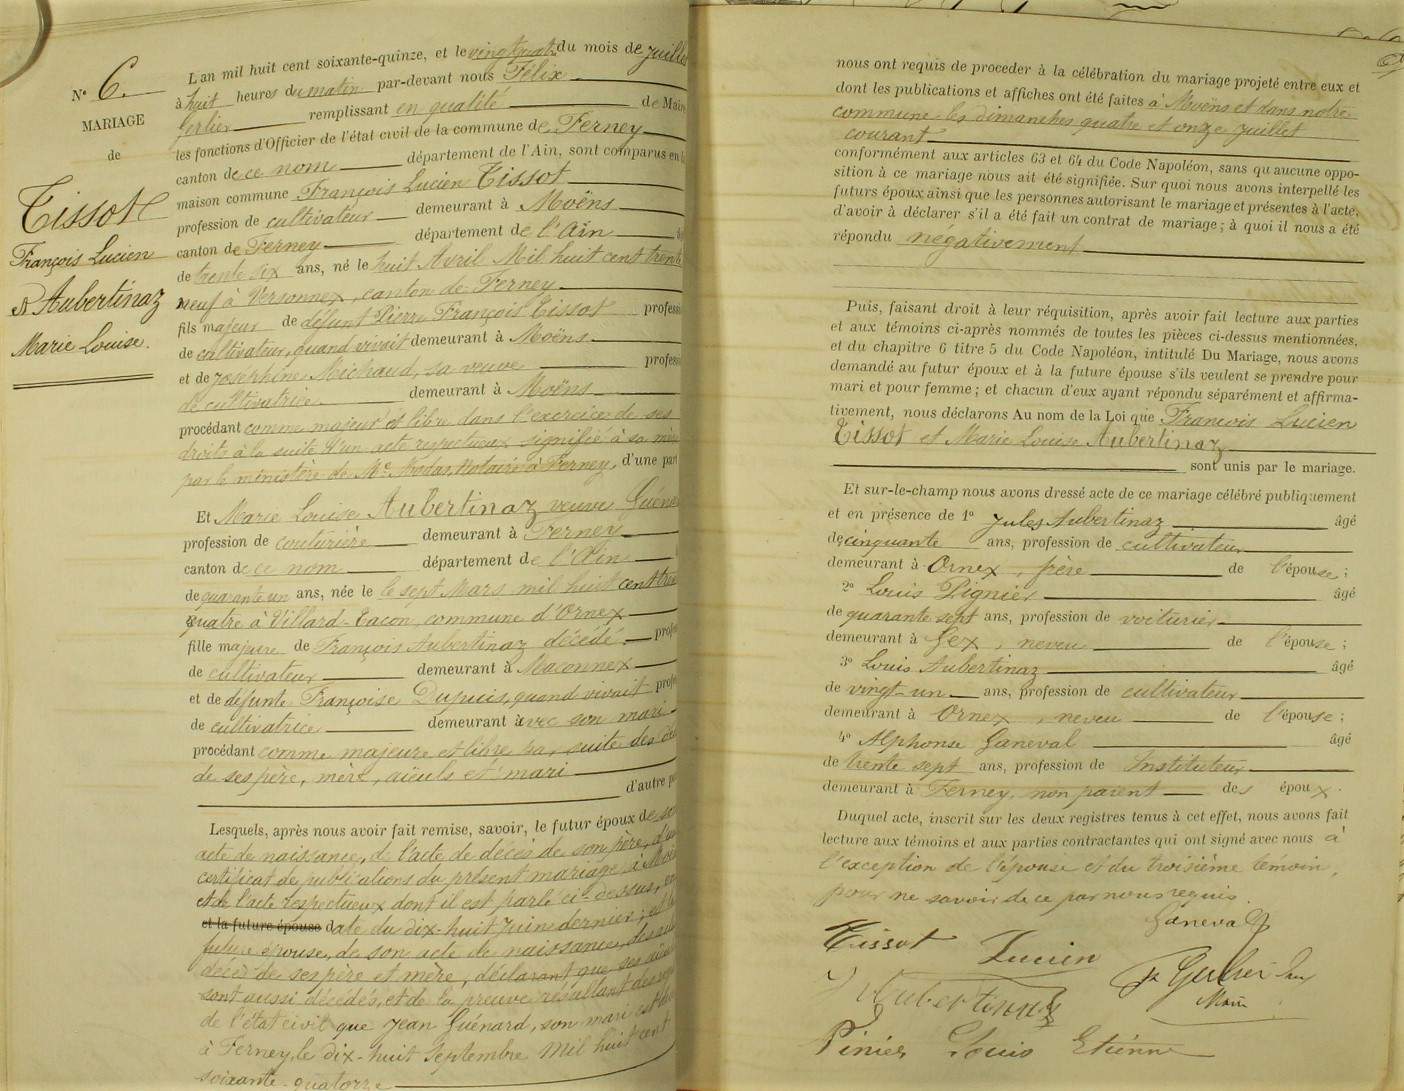 N° 6.
MARIAGE
de
Tissot
François Lucien
& Aubertinaz
Marie Louise.
L'an mil huit cent soixante-quinze, et le vingt quatre du mois de juillet
à huit heures du matin par-devant nous Félix
Gerlier remplissant en qualité de Maire
les fonctions d'Officier de l'état civil de la commune de Ferney
canton de ce nom département de l'Ain, sont comparus en la
maison commune François Lucien Tissot
profession de cultivateur demeurant à Moëns
canton de Ferney département de l'Ain
de trente six ans, né le huit Avril Mil huit cent trente
neuf à Versonnex, canton de Ferney
fils majeur de défunt Pierre François Tissot profession
de cultivateur, quand vivait demeurant à Moëns
et de Joséphine Michaud, sa veuve profession
de cultivatrice demeurant à Moëns
procédant comme majeur et libre dans l'exercice de ses
droits à la suite d'un acte respectueux signifié à sa mère
par le ministère de Me Notaire à Ferney, d'une part
Et Marie Louise Aubertinaz veuve Guénard
profession de couturière demeurant à Ferney
canton de ce nom département de l'Ain
de quarante un ans, née le sept Mars mil huit cent trente
quatre à Villard-Tacon, commune d'Ornex
fille majeure de François Aubertinaz décédé profession
de cultivateur demeurant à Maconnex
et de défunte Françoise Dupuis, quand vivait profession
de cultivatrice demeurant avec son mari
procédant comme majeure et libre par suite des décès
de ses père, mère, aïeuls et mari
d'autre part
Lesquels, après nous avoir fait remise, savoir, le futur époux de son
acte de naissance, de l'acte de décès de son père, d'un
certificat de publications du présent mariage à Moëns
et de l'acte respectueux dont il est parlé ci-dessus, en
et la future épouse date du dix-huit Juin dernier; et la
future épouse, de son acte de naissance, des actes de
décès de ses père et mère, déclarant que ses aïeuls
sont aussi décédés, et de la preuve résultant des registres
de l'état civil que Jean Guénard, son mari est décédé
à Ferney, le dix-huit Septembre Mil huit cent
soixante-quatorze
nous ont requis de proceder à la célébration du mariage projeté entre eux et
dont les publications et affiches ont été faites à Moëns et dans notre
commune les dimanches quatre et onze juillet
courant
conformément aux articles 63 et 64 du Code Napoléon, sans qu'aucune oppo-
sition à ce mariage nous ait été signifiée. Sur quoi nous avons interpellé les
futurs époux ainsi que les personnes autorisant le mariage et présentes à l'acte,
d'avoir à déclarer s'il a été fait un contrat de mariage; à quoi il nous a été
répondu négativement
Puis, faisant droit à leur réquisition, après avoir fait lecture aux parties
et aux témoins ci-après nommés de toutes les pièces ci-dessus mentionnées,
et du chapitre 6 titre 5 du Code Napoléon, intitulé Du Mariage, nous avons
demandé au futur époux et à la future épouse s'ils veulent se prendre pour
mari et pour femme; et chacun d'eux ayant répondu séparément et affirma-
tivement, nous déclarons Au nom de la Loi que François Lucien
Tissot et Marie Louise Aubertinaz
sont unis par le mariage.
Et sur-le-champ nous avons dressé acte de ce mariage célébré publiquement
et en présence de 1° Jules Aubertinaz âgé
de cinquante ans, profession de cultivateur
demeurant à Ornex, frère de l'épouse;
2° Louis Pignier âgé
de quarante sept ans, profession de voiturier
demeurant à Gex, neveu de l'épouse;
3° Louis Aubertinaz âgé
de vingt-un ans, profession de cultivateur
demeurant à Ornex, neveu de l'épouse;
4° Alphonse Ganeval âgé
de trente sept ans, profession de Instituteur
demeurant à Ferney, non parent des époux.
Duquel acte, inscrit sur les deux registres tenus à cet effet, nous avons fait
lecture aux témoins et aux parties contractantes qui ont signé avec nous à
l'exception de l'épouse et du troisième témoin,
pour ne savoir de ce par nous requis.
Ganeval
Tissot Lucien
Maire
Aubertinaz
Pinier Louis Etiénne